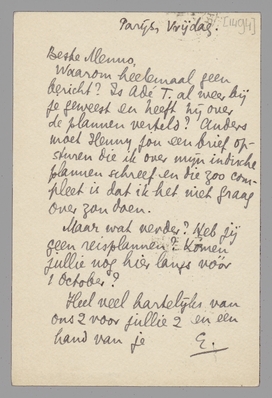 Parijs, Vrijdag.
Beste Menno,
Waarom heelemaal geen
bericht? Is Adé T. al weer bij
je geweest en heeft hij over
de plannen verteld? Anders
moet Henny jou een brief op-
sturen die ik over mijn indische
plannen schreef en die zoo com-
pleet is dat ik het niet graag
over zou doen.
Maar wat verder? Heb jij
geen reisplannen? Komen
jullie nog hier langs vóór
1 October?
Heel veel hartelijks van
ons 2 voor jullie 2 en een
hand van je E.